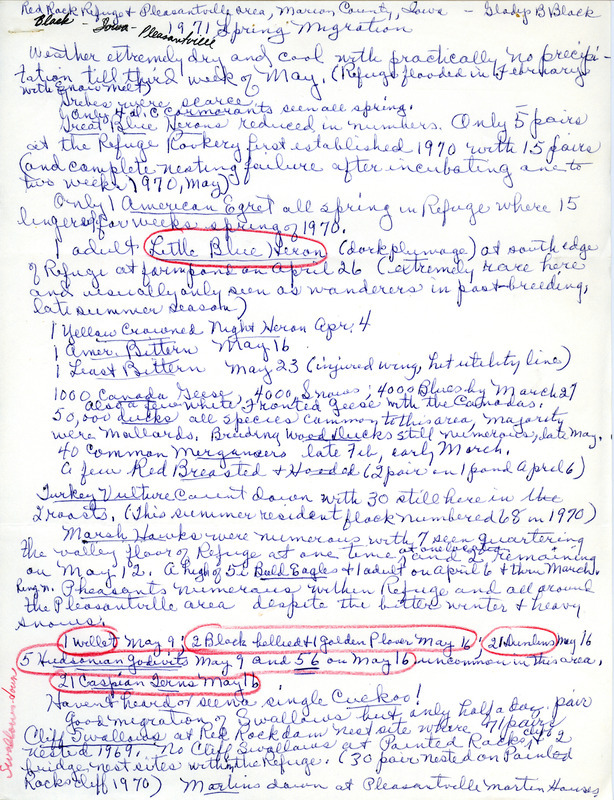 Red Rock Refuge & Pleasantville area, Marion County, Iowa - Gladys B Black
Black - Iowa - Pleasantville
1971 Spring Migration
Weather extremely dry and cool with practically no precipi-
tation till third week of May. (Refuge flooded in February
with snow melt)
Grebes were scarce.
Only 4 D. C. Cormorants seen all spring.
Great Blue Herons reduced in numbers. Only 5 pairs
at the Refuge Rookery first established 1970 with 15 pairs
(and complete nesting failure after incubating one to
two weeks 1970, May)
Only 1 American Egret all spring in Refuge where 15
lingered for weeks spring of 1970.
1 adult Little Blue Heron (dark plumage) at south edge
of Refuge at farm pond on April 26 (extremely rare here
and usually only seen as wanderers in post-breeding,
late summer season)
1 Yellow Crowned Night Heron Apr. 4
1 Amer. Bittern May 16
1 Least Bittern May 23 (injured wing, hit utility line)
1000 Canada Geese, 4000 Snows; 4000 Blues by March 27
Also a few White Fronted Geese with the Canadas.
50,000 ducks all species common to this area, majority
were Mallards. Breeding Wood ducks still numerous, late May.
40 Common Mergansers late Feb, early March.
A few Red Breasted & Hooded (2 pair on 1 pond April 6)
Turkey Vulture Count down with 30 still here in the
2 roosts. (This summer resident flock numbered 68 in 1970)
Marsh Hawks were numerous with 7 seen quartering
the valley floor of Refuge at one time and 2 remaining
on May 12. A high of 52 Bald Eagles & 1 adult on April 6 & thru March.
at one location
Ring n. Pheasants numerous within Refuge and all around
the Pleasantville area despite the bitter winter & heavy
snows.
1 willet May 9; 2 Black bellied & 1 Golden Plover May 16; 21 Dunlins May 16
5 Hudsonian Godwits May 9 and 56 on May 16 uncommon in this area.
21 Caspian Terns May 16
Haven't heard or seen a single Cuckoo!
Good migration of Swallows but only half a doz. pair
Cliff Swallows at Red Rock dam nest site where 41 pairs
nested 1969. No Cliff Swallows at Painted Rocks cliff & 2
bridge nest sites within the Refuge. (30 pair nested on Painted
Rocks cliff 1970) Martins down at Pleasantville Martin Houses
Swallows-down